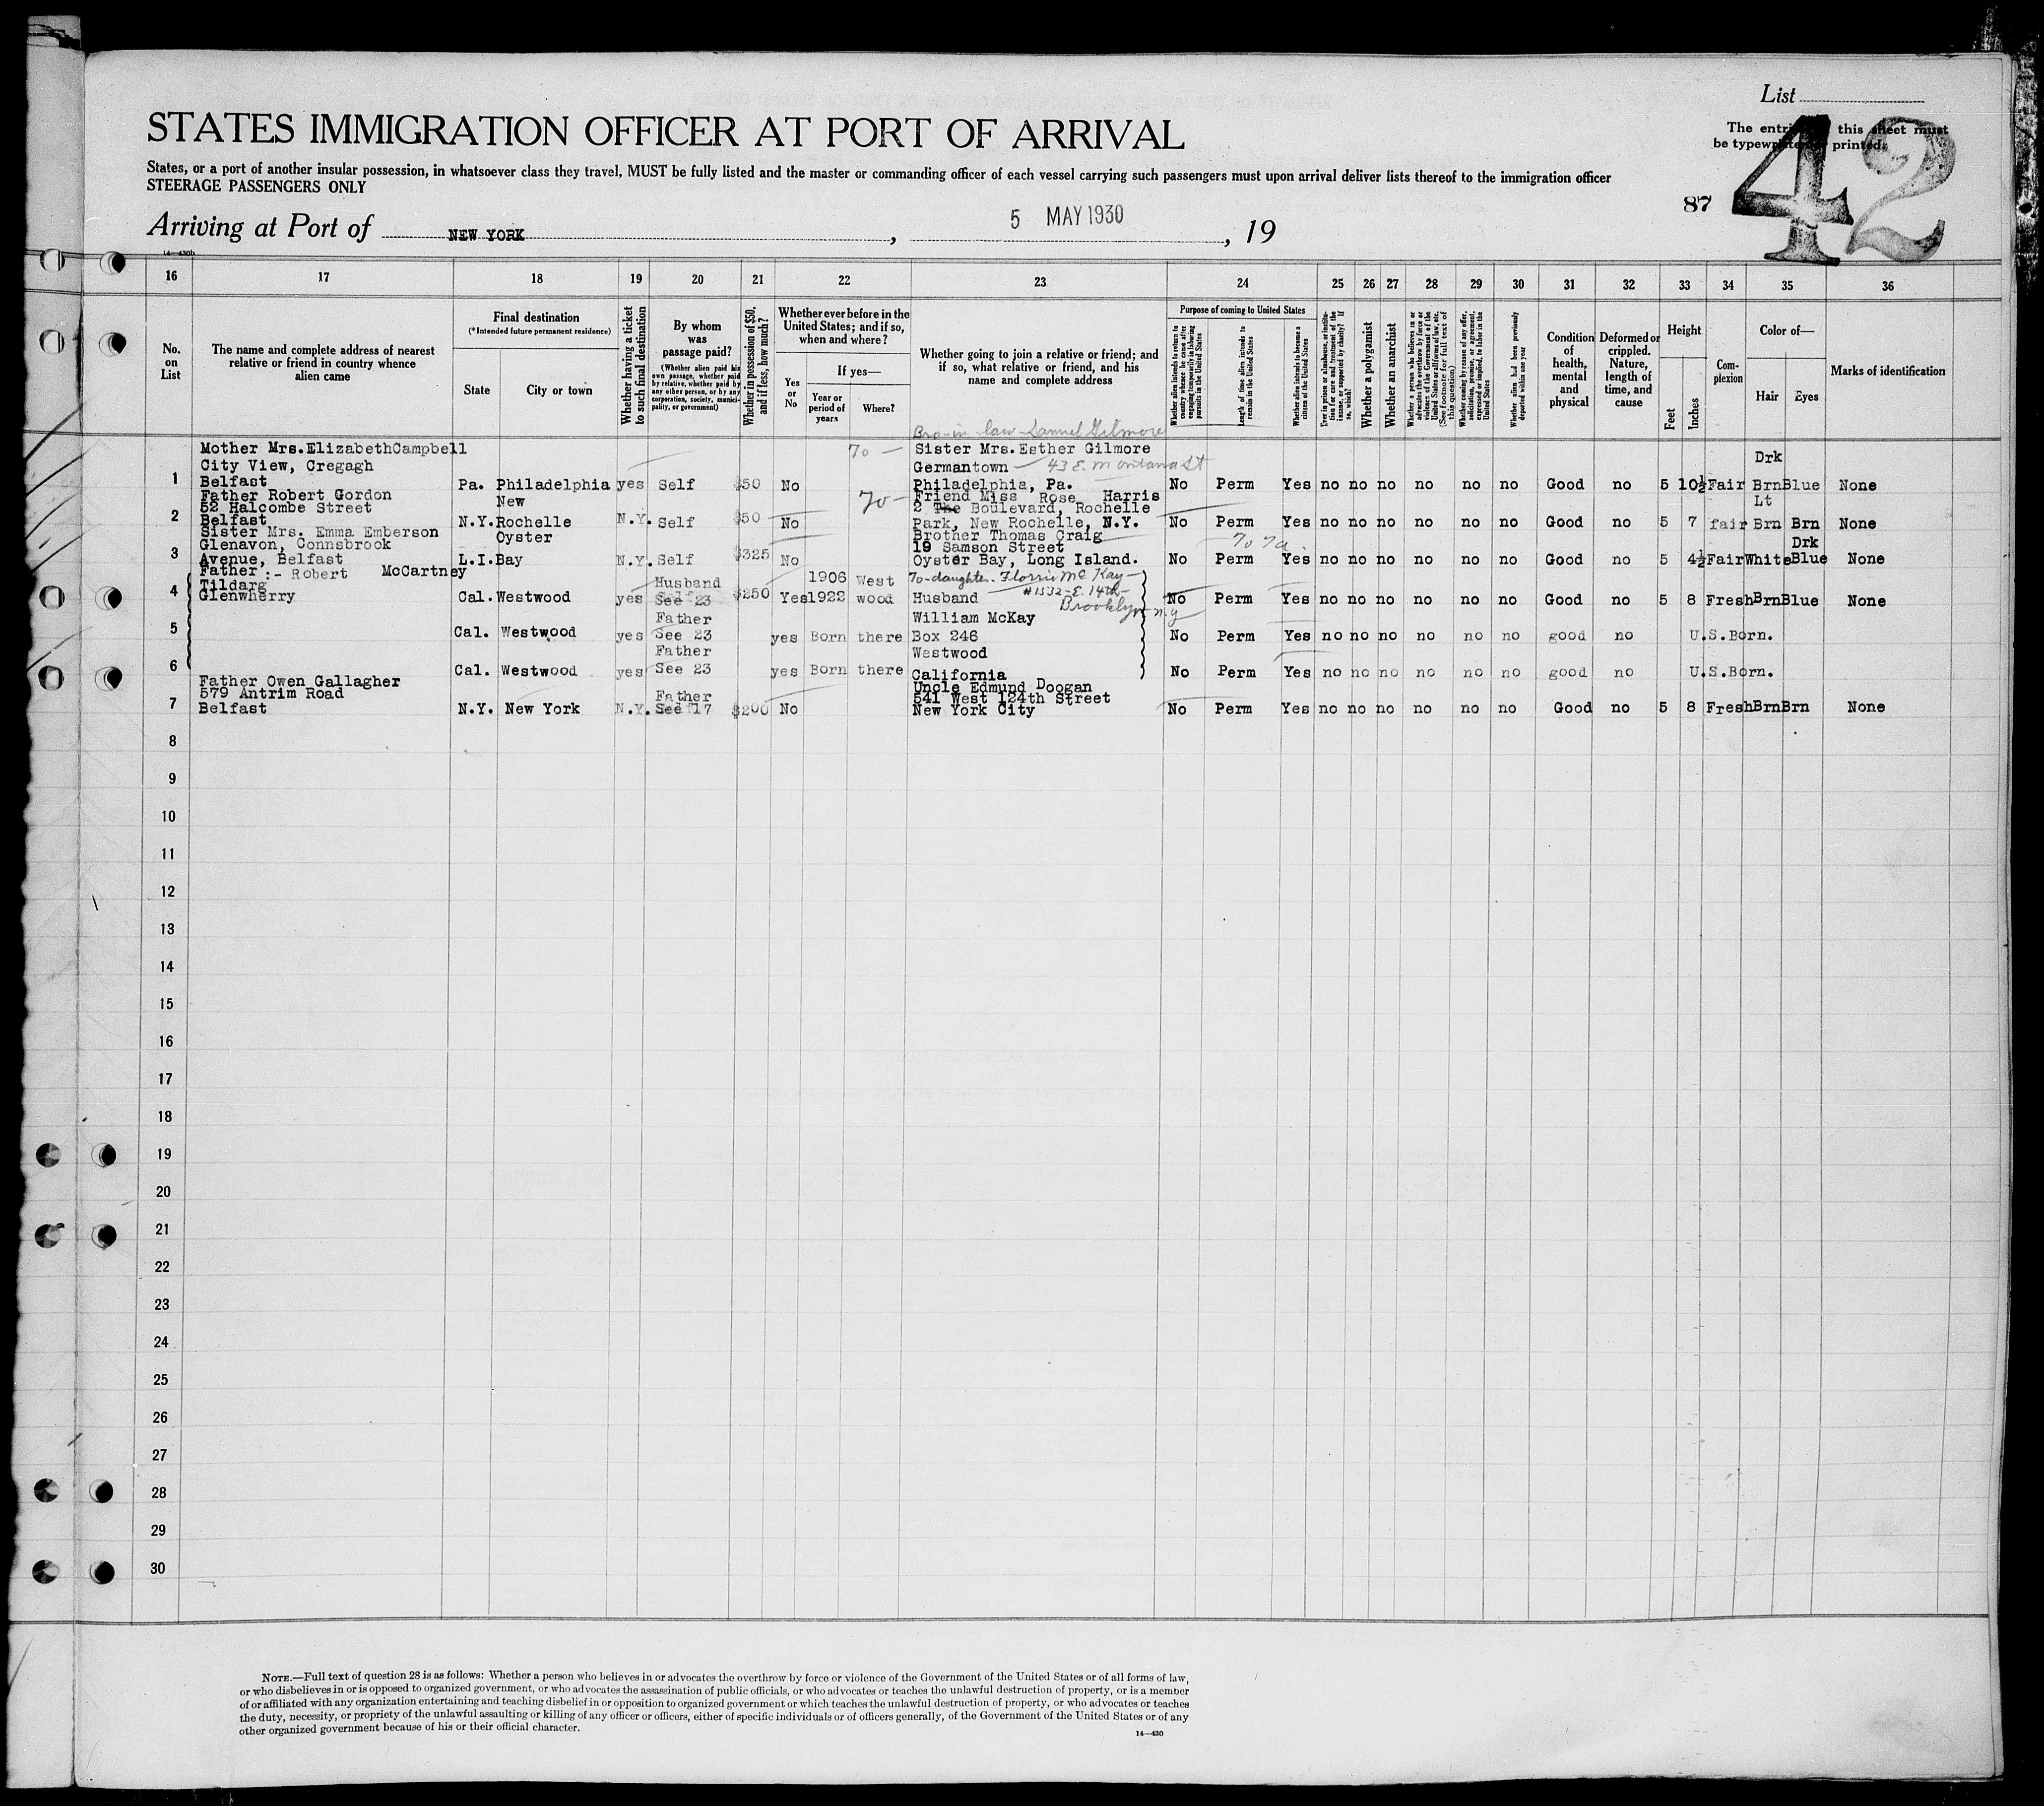 List
The entri this sheet must
be typew printed.
42
87
STATES IMMIGRATION OFFICER AT PORT OF ARRIVAL
States, or a port of another insular possession, in whatsoever class they travel, MUST be fully listed and the master or commanding officer of each vessel carrying such passengers must upon arrival deliver lists thereof to the immigration officer
STEERAGE PASSENGERS ONLY
Arriving at Port of NEW YORK, 5 MAY 1930, 19
14—430b
16 17 18 19 20 21 22 23 24 25 26 27 28 29 30 31 32 33 34 35 36
No. on List
The name and complete address of nearest relative or friend in country whence alien came
Final destination
(*Intended future permanent residence)
State
City or town
Whether having a ticket to such final destination
By whom was passage paid?
(Whether alien paid his own passage, whether paid by relative, whether paid by any other person, or by any corporation, society, municipality, or government)
Whether in possession of $50, and if less, how much?
Whether ever before in the United States; and if so, when and where?
Yes or No
If yes—
Year or period of years
Where?
Whether going to join a relative or friend; and if so, what relative or friend, and his name and complete address
Purpose of coming to United States
Whether alien intends to return to country whence he came after engaging temporarily in laboring pursuits in the United States
Length of time alien intends to remain in the United States
Whether alien intends to become a citizen of the United States
Ever in prison or almshouse, or institution for care and treatment of the insane, or supported by charity? If so, which?
Whether a polygamist
Whether an anarchist
Whether a person who believes in or advocates the overthrow by force or violence of the Government of the United States or all forms of law, etc. (See footnote for full text of this question)
Whether coming by reason of any offer, solicitation, promise, or agreement, expressed or implied, to labor in the United States
Whether alien had been previously deported within one year
Condition of health, mental and physical
Deformed or crippled. Nature, length of time, and cause
Height
Feet
Inches
Complexion
Color of—
Hair
Eyes
Marks of identification
Bro-in-law Samuel Gilmore
Mother Mrs.ElizabethCampbell To — Sister Mrs.Esther Gilmore
City View, Cregagh Germantown — 43 E. Montana St Drk
1 Belfast Pa. Philadelphia yes Self $50 No Philadelphia, Pa. No Perm Yes no no no no no no Good no 5 10½ Fair Brn Blue None
Father Robert Gordon New To — Friend Miss Rose Harris Lt
52 Halcombe Street 2 The Boulevard, Rochelle
2 Belfast N.Y. Rochelle N.Y. Self $50 No Park, New Rochelle, N.Y. No Perm Yes no no no no no no Good no 5 7 fair Brn Brn None
Sister Mrs. Emma Emberson Oyster Brother Thomas Craig
Glenavon, Connsbrook 19 Samson Street Drk
3 Avenue, Belfast L.I. Bay N.Y. Self $325 No Oyster Bay, Long Island. No Perm Yes no no no no no no Good no 5 4½ Fair White Blue None
Father :- Robert McCartney
Tildarg Husband 1906 West To-daughter- Florrie McKay —
4 Glenwherry Cal. Westwood yes See 23 $250 Yes 1922 wood Husband #1532-E. 14th- No Perm Yes no no no no no no Good no 5 8 Fresh Brn Blue None
Brooklyn N.Y
Father William McKay
5 Cal. Westwood yes See 23 yes Born there Box 246 No Perm Yes no no no no no no good no U.S.Born.
Father Westwood
6 Cal. Westwood yes See 23 yes Born there California No Perm Yes no no no no no no good no U.S.Born.
Father Owen Gallagher Uncle Edmund Doogan
579 Antrim Road Father 541 West 124th Street
7 Belfast N.Y. New York N.Y. See 17 $200 No New York City No Perm Yes no no no no no no Good no 5 8 Fresh Brn Brn None
8
9
10
11
12
13
14
15
16
17
18
19
20
21
22
23
24
25
26
27
28
29
30
NOTE.—Full text of question 28 is as follows: Whether a person who believes in or advocates the overthrow by force or violence of the Government of the United States or of all forms of law,
or who disbelieves in or is opposed to organized government, or who advocates the assassination of public officials, or who advocates or teaches the unlawful destruction of property, or is a member
of or affiliated with any organization entertaining and teaching disbelief in or opposition to organized government or which teaches the unlawful destruction of property, or who advocates or teaches
the duty, necessity, or propriety of the unlawful assaulting or killing of any officer or officers, either of specific individuals or of officers generally, of the Government of the United States or of any
other organized government because of his or their official character.
14—430